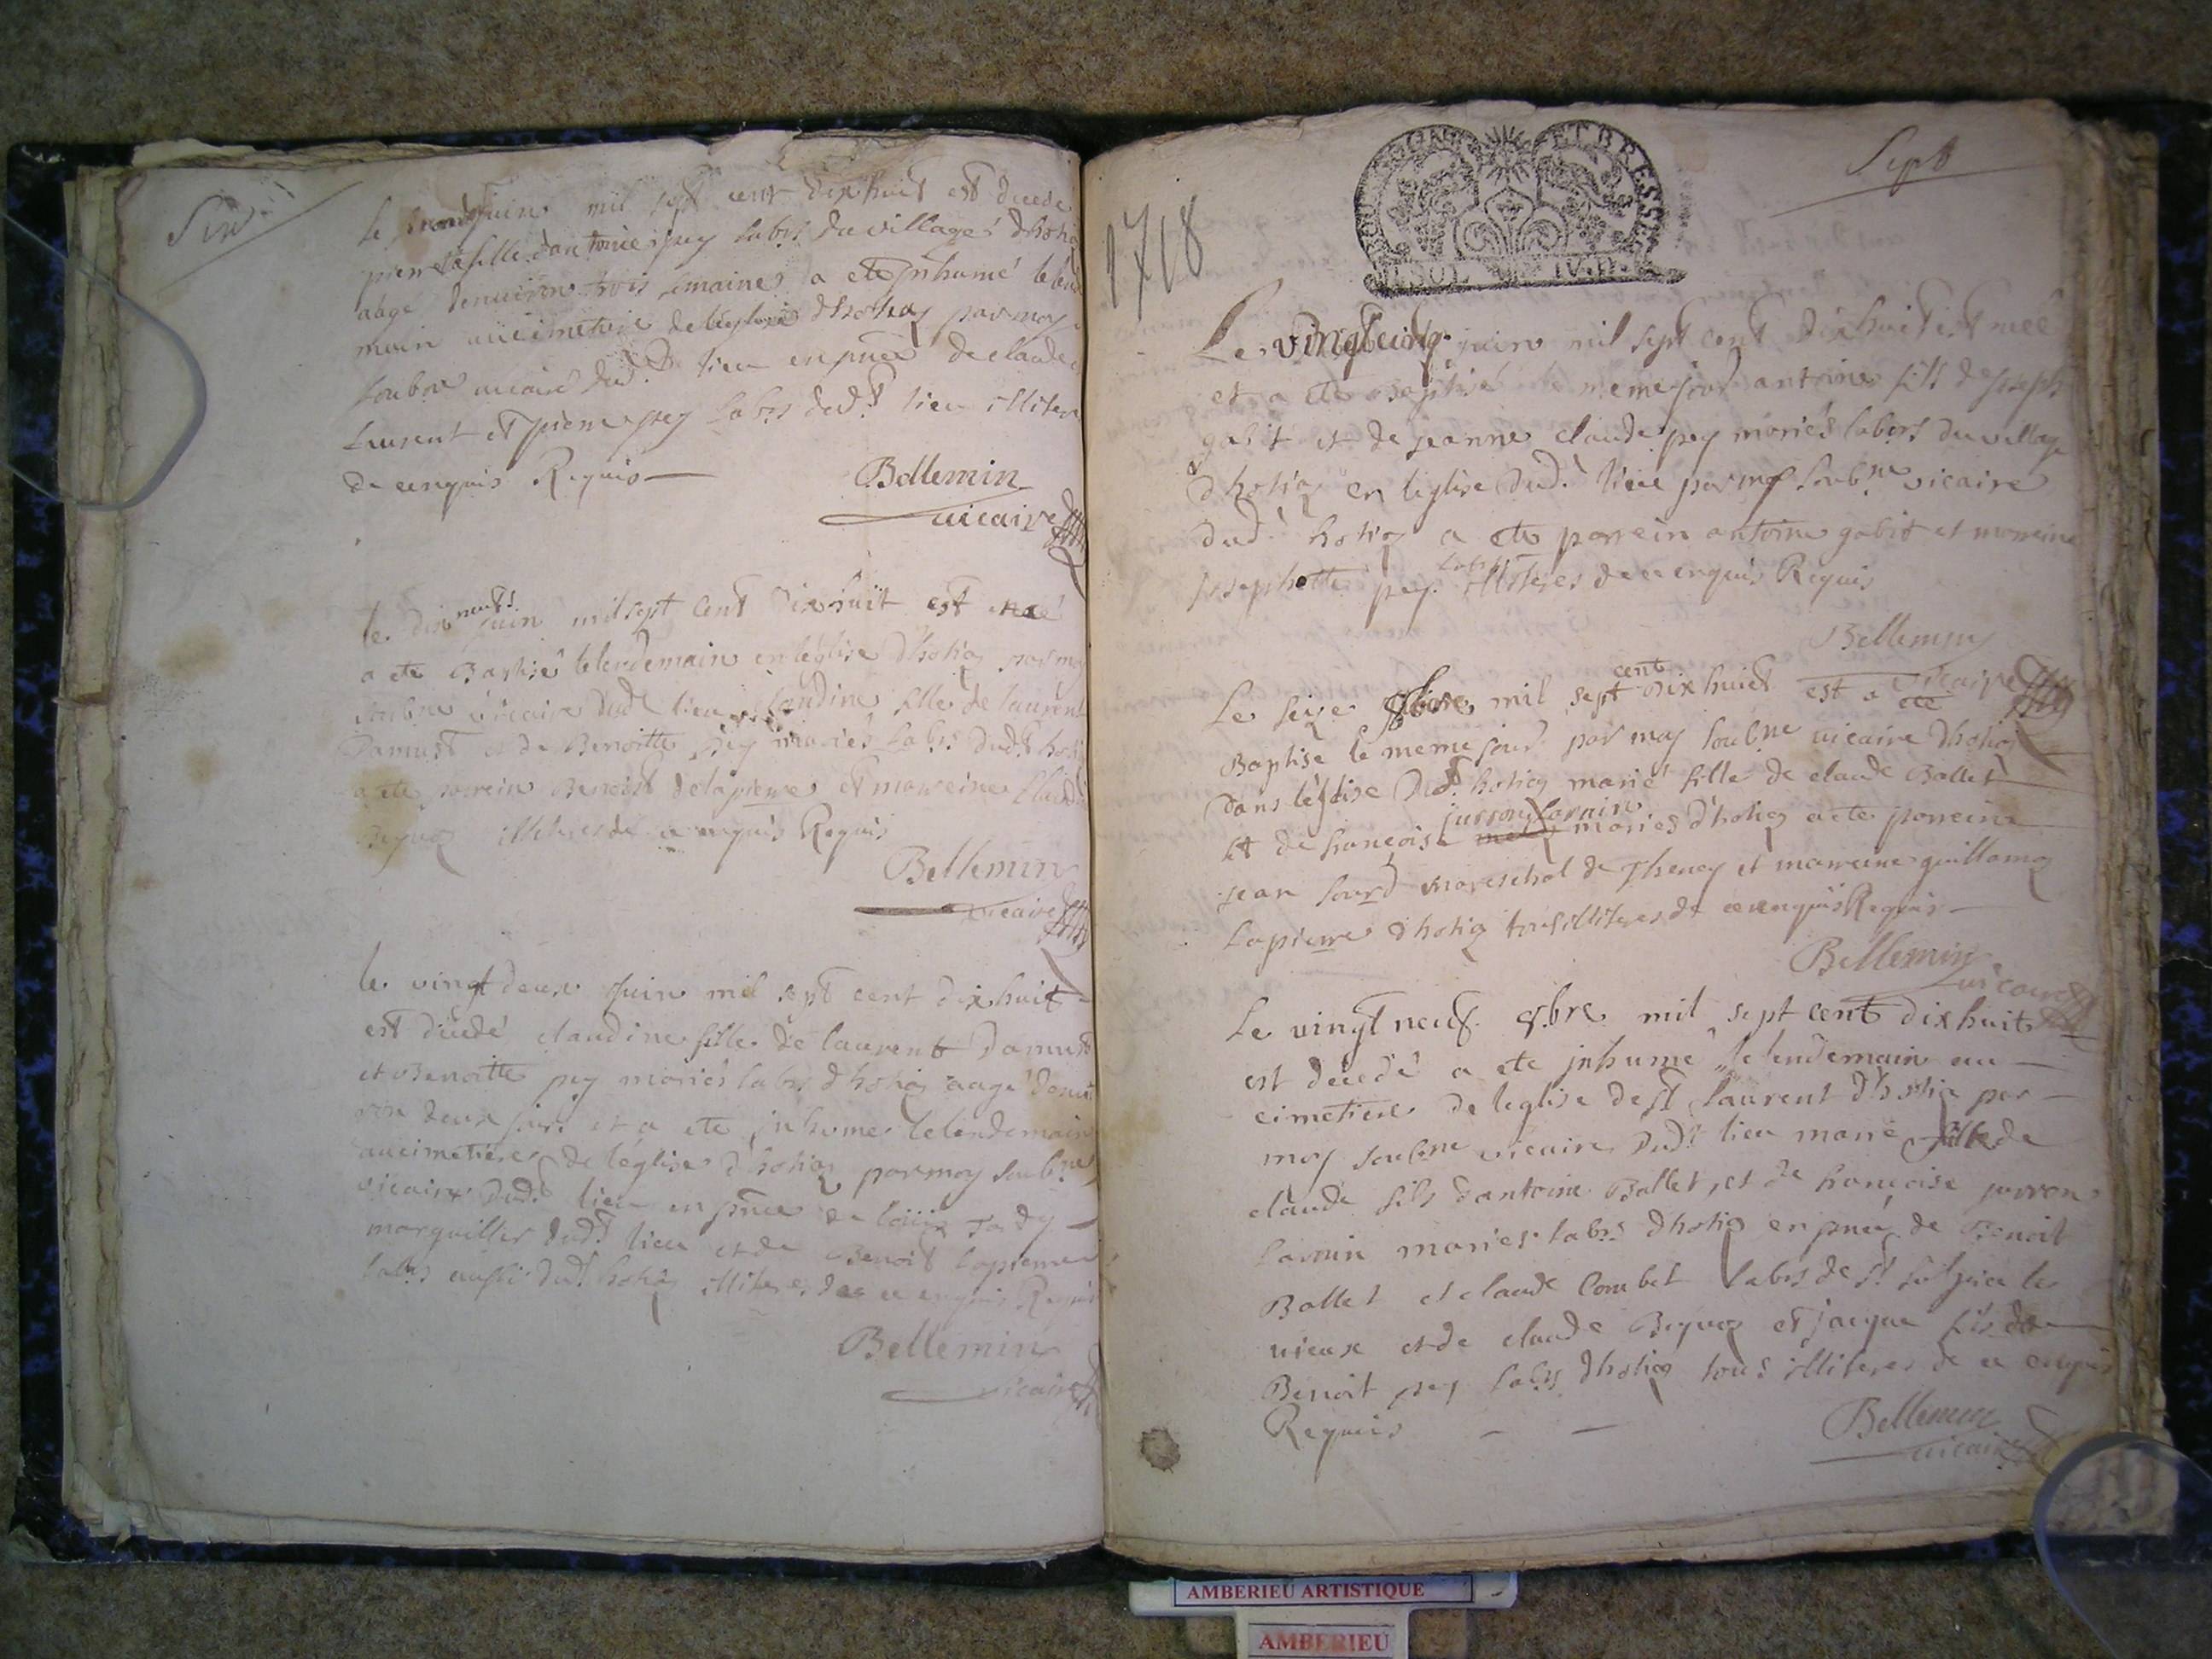 Six
Le juin mil sept cent dix huit est decede
fille d'antoine pey labrs du village d'hotia
aagé denuiron trois semaines a ete inhumé le lende
main au cimetiere de leglise d'hotiaz par moy
soubne vicaire dudt lieu en pnce de claude
Laurent et pierre pey labrs dudt lieu illiteres
de ce enquis Requis
Bellemin
vicaire
le dix neufs juin mil sept cent dix huit est née
a ete Baptisé le lendemain en leglise d'hotiaz par moy
soubne vicaire dudt lieu claudine fille de laurent
Damust et de Benoitte pey mariés labrs dudt hoti
a ete parrein Benoist delapierre et marreine Claudi
illiteres de ce enquis Requis
Bellemin
vicaire
le vingt deux juin mil sept cent dix huit
est décedé claudine fille de laurent Damust
et Benoitte pey mariés labrs d'hotiaz aagé denui
ron deux jours et a ete inhumé le lendemain
au cimetiere de léglise d'hotiaz par moy soubne
vicaire dudt lieu en pnce de Tardy
marguiller dudt lieu et de Benoit lapierre
labrs aussi dudt hotiaz illiteres de ce enquis Requis
Bellemin
vicaire
1718
BOURGOGNE ET BRESSE
Sept
Le vingt cinq juin mil sept cent dix huit est née
et a ete baptisé le meme jour antoine fils de joseph
gabit et de jeanne claude pey mariés labrs du village
d'hotiaz en leglise dudt lieu par moy soubne vicaire
dudt hotiaz a ete parrein antoine gabit et marreine
josephatte pey labrs illiteres de ce enquis Requis
Bellemin
vicaire
Le seize mil sept cent dix huit est a ete
Baptise le meme jour par moy soubne vicaire d'hotiaz
dans l'églize dudt hotiaz marie fille de claude Ballet
et de francoise jurron Larnin mariés d'hotiaz a ete parrein
jean sourd mareschal de Thenay et marreine guillama
Lapierre d'hotiaz tous illiteres de ce enquis Requis
Bellemin
vicaire
Le vingt neuf 8.bre mil sept cent dix huit
est décedé a ete inhumé le lendemain au
cimetiere de leglise de st laurent d'hotia par
moy soubne vicaire dudt lieu marie fille de
claude fils d'antoine Ballet, et de francoise jurron
Larnin mariés labrs d'hotiaz en pnce de Benoit
Ballet et claude Combet labrs de st sulpice le
vieux et de claude et jacque fils de
Benoit pey labrs d'hotiaz tous illiteres de ce enquis
Requis
Bellemin
vicaire
AMBERIEU ARTISTIQUE
AMBERIEU